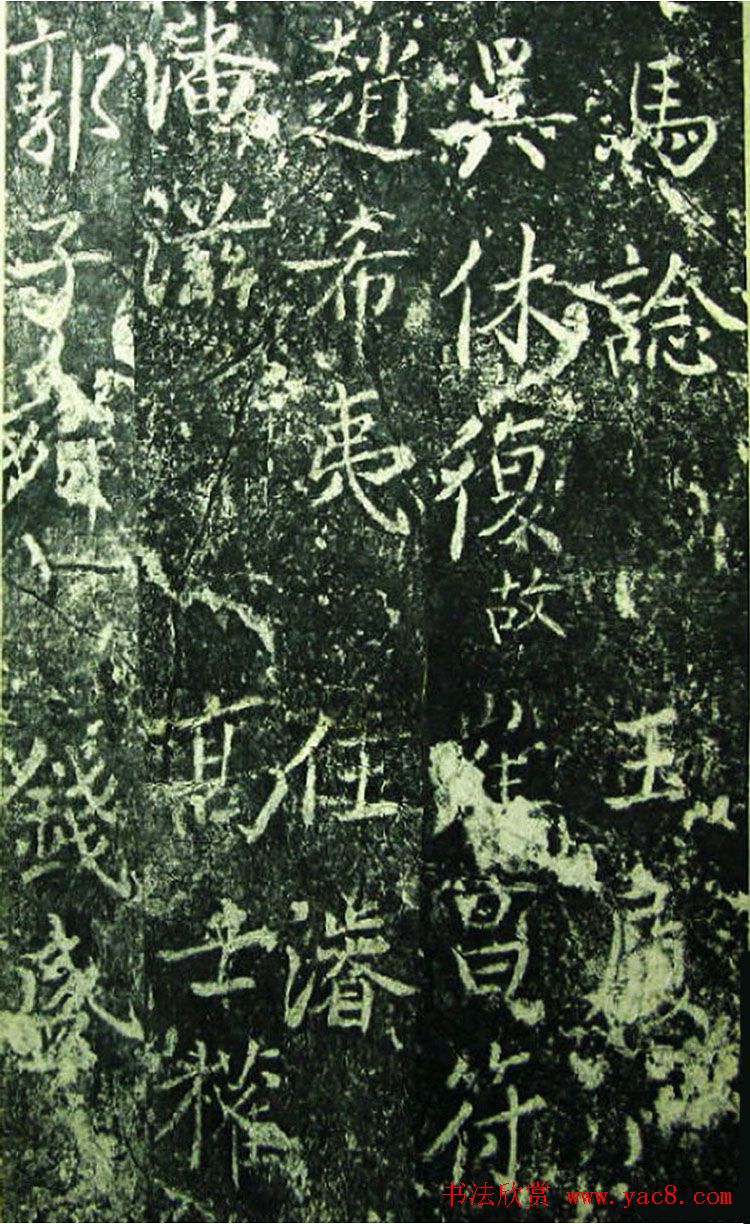 馬諗 王
吳休復故 崔昌符
趙希夷 任濬
潘滋 高士權
郭子 錢盛
书法欣赏 www.yac8.com